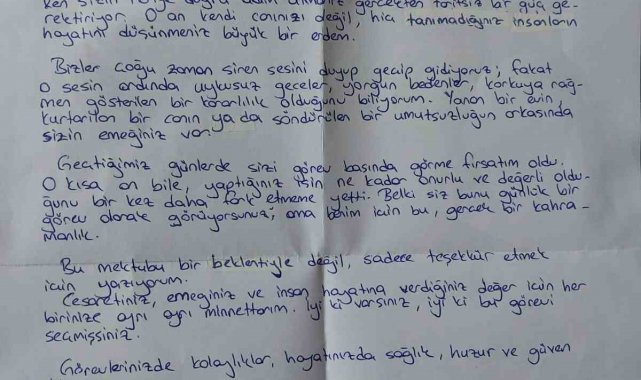 ken sizin
gerçekten tarifsiz bir güç ge-
rektiriyor. O an kendi canınızı değil, hiç tanımadığınız insanların
hayatını düşünmeniz büyük bir erdem.
Bizler çoğu zaman siren sesini duyup geçip gidiyoruz; fakat
o sesin ardında uykusuz geceler, yorgun bedenler, korkuya rağ-
men gösterilen bir kararlılık olduğunu biliyorum. Yanan bir evin,
kurtarılan bir canın ya da söndürülen bir umutsuzluğun arkasında
sizin emeğiniz var.
Geçtiğimiz günlerde sizi görev başında görme fırsatım oldu.
O kısa an bile, yaptığınız işin ne kadar onurlu ve değerli oldu-
ğunu bir kez daha fark etmeme yetti. Belki siz bunu günlük bir
görev olarak görüyorsunuz; ama benim için bu, gerçek bir kahra-
manlık.
Bu mektubu bir beklentiyle değil, sadece teşekkür etmek
için yazıyorum.
Cesaretiniz, emeğiniz ve insan hayatına verdiğiniz değer için her
birinize ayrı ayrı minnettarım. İyi ki varsınız, iyi ki bu görevi
seçmişsiniz.
Görevlerinizde kolaylıklar, hayatınızda sağlık, huzur ve güven